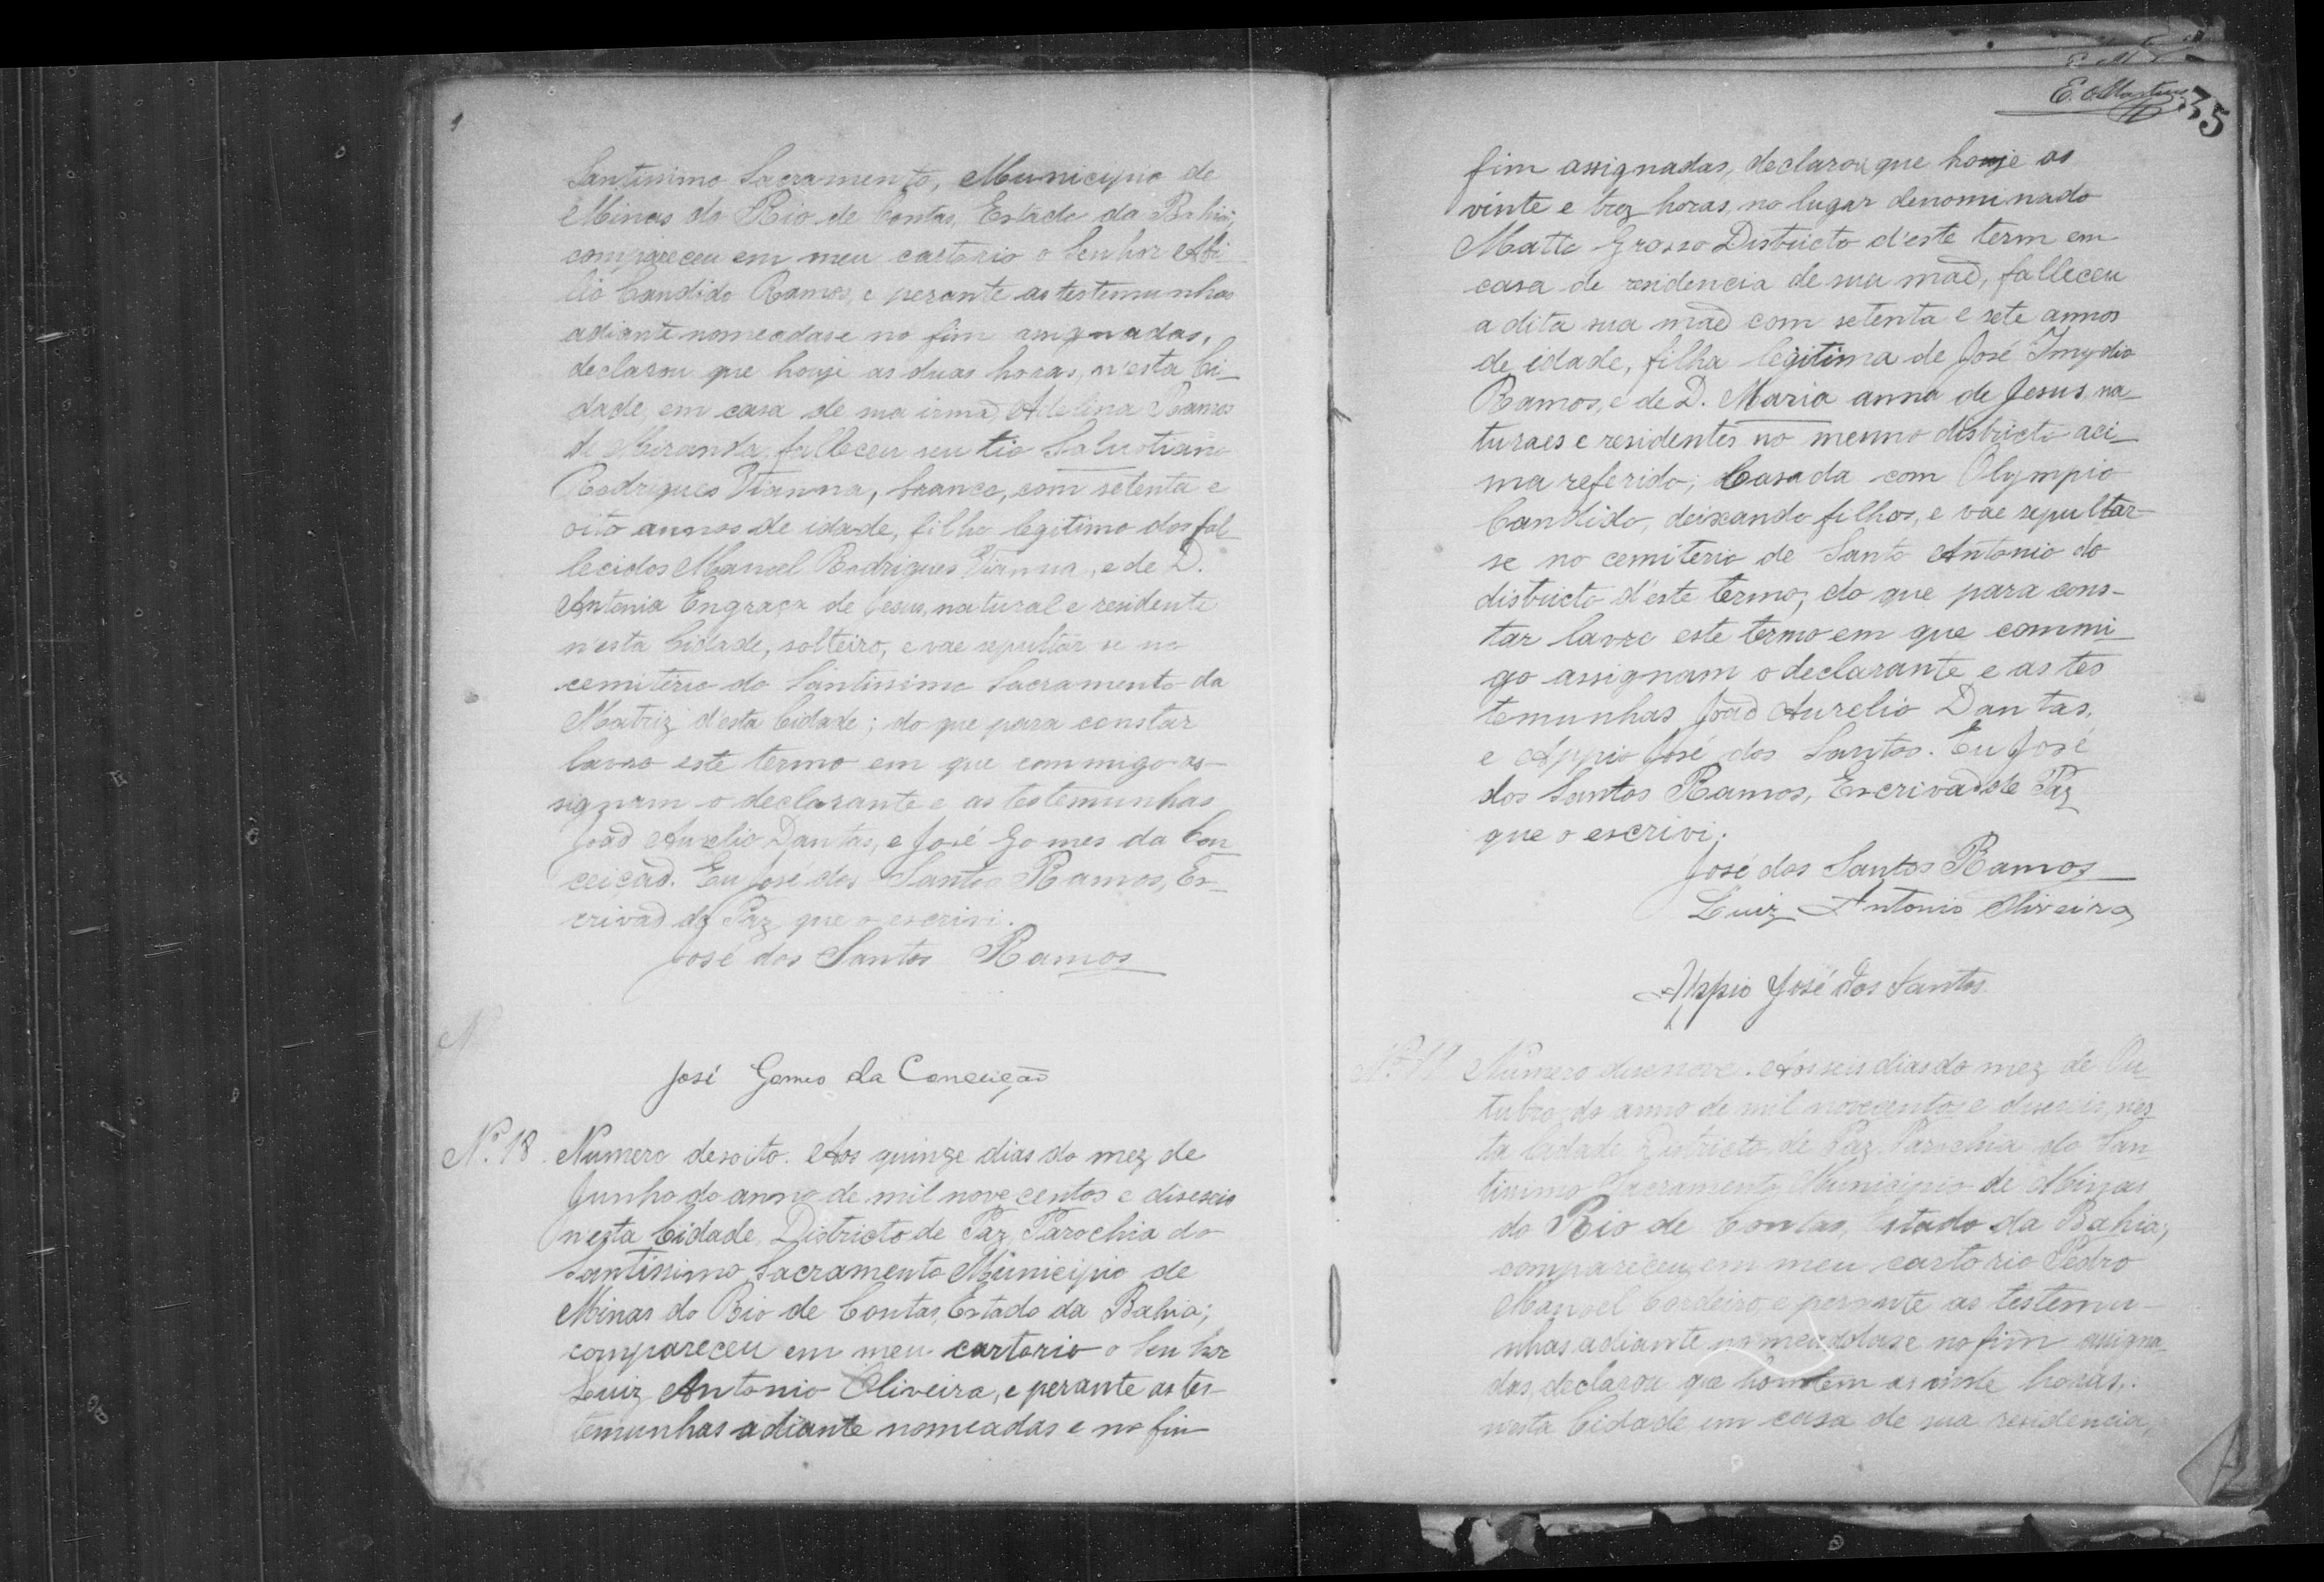 Santissimo Sacramento, Municipio de
Minas do Rio de Contas, Estado da Bahia;
compareceu em meu cartorio o Senhor Abi
lio Candido Ramos, e perante as testemunhas
adiante nomeadas e no fim assignadas,
declarou que houje as duas horas, n'esta Ci_
dade, em casa de sua irmã Adelina Ramos
de Miranda falleceu seu tio Salustiano
Rodrigues Vianna, branco, com setenta e
oito annos de idade, filho legitimo dos fal_
lecidos Manoel Rodrigues Vianna, e de D.
Antonia Engraça de Jesus, natural e residente
n'esta Cidade, solteiro, e vae sepultar se no
cemiterio do Santissimo Sacramento da
Matriz d'esta Cidade; do que para constar
lavro este termo em que commigo as-
signam o declarante e as testemunhas
João Aurelio Dantas, e José Gomes da Con
ceição. Eu José dos Santos Ramos, Es_
crivão de Paz que o escrivi.
José dos Santos Ramos
José Gomes da Conceição
Nº 18. Numero desoito. Aos quinze dias do mez de
Junho do anno de mil nove centos e diseseis
n'esta Cidade, Districto de Paz, Parochia do
Santissimo Sacramento Municipio de
Minas do Rio de Contas, Estado da Bahia;
compareceu em meu cartorio o Senhor
Luiz Antonio Oliveira, e perante as tes-
temunhas adiante nomeadas e no fim
E. Martins 35
fim assignadas, declarou que houje as
vinte e trez horas, no lugar denominado
Matto Grosso Districto d'este term em
casa de residencia de sua mãe, falleceu
a dita sua mãe com setenta e sete annos
de idade, filha legitima de José Imydio
Ramos, e de D. Maria anna de Jesus, na_
turaes e residentes no mesmo districto aci_
ma referido; Casada com Olympio
Candido, deixando filhos, e vae sepultar-
se no cemiterio de Santo Antonio do
districto d'este termo; do que para cons-
tar lavro este termo em que commi_
go assignam o declarante e as tes
temunhas João Aurelio Dantas,
e Appio José dos Santos. Eu José
dos Santos Ramos, Escrivão de Paz
que o escrivi.
José dos Santos Ramos
Luiz Antonio Oliveira
Appio José dos Santos
Numero disenove. Aos seis dias do mez de Ou_
tubro do anno de mil novecentos e diseseis, nes
ta Cidade Districto de Paz, Parochia do San
tissimo Sacramento Municipio de Minas
do Rio de Contas, Estado da Bahia;
compareceu em meu cartorio Pedro
Manoel Cordeiro, e perante as testemu-
nhas adiante nomeadas e no fim assigna_
das, declarou que hontem as vinte horas,
nesta Cidade em casa de sua residencia,